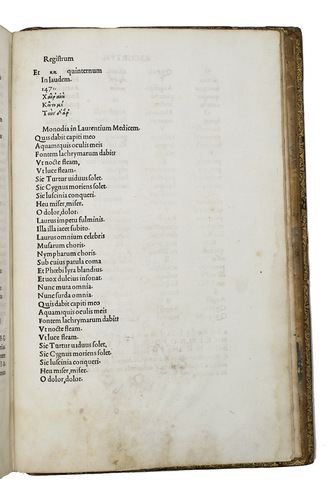 Registrum
Et xx quinternum
In laudem.
1471.
Monodia in Laurentium Medicem.
Quis dabit capiti meo
Aquam,quis oculis meis
Fontem lachrymarum dabit
Vt nocte fleam,
Vt luce fleam.
Sic Turtur uiduus solet.
Sic Cygnus moriens solet.
Sic luscinia conqueri.
Heu miser,miser.
O dolor,dolor.
Laurus impetu fulminis.
Illa illa iacet subito.
Laurus omnium celebris
Musarum choris.
Nympharum choris.
Sub cuius patula coma
Et Phœbi lyra blandius
Et uox dulcius insonat.
Nunc muta omnia.
Nunc surda omnia.
Quis dabit capiti meo
Aquam,quis oculis meis
Fontem lachrymarum dabit
Vt nocte fleam.
Vt luce fleam.
Sic Turtur uiduus solet,
Sic Cygnus moriens solet.
Sic luscinia conqueri.
Heu miser,miser.
O dolor,dolor.